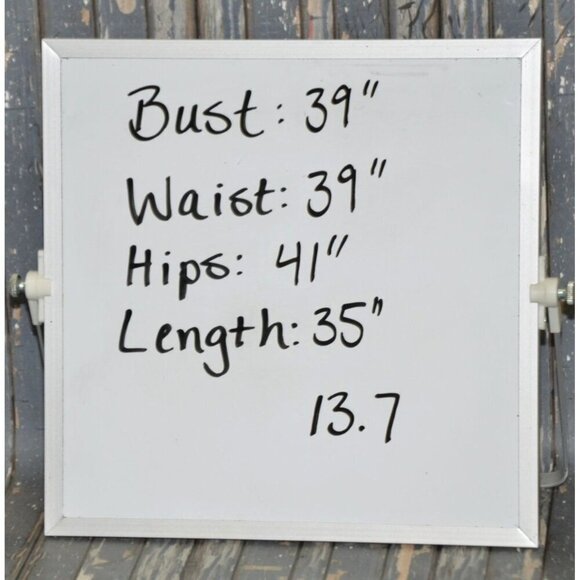 Bust: 39"
Waist: 39"
Hips: 41"
Length: 35"
13.7